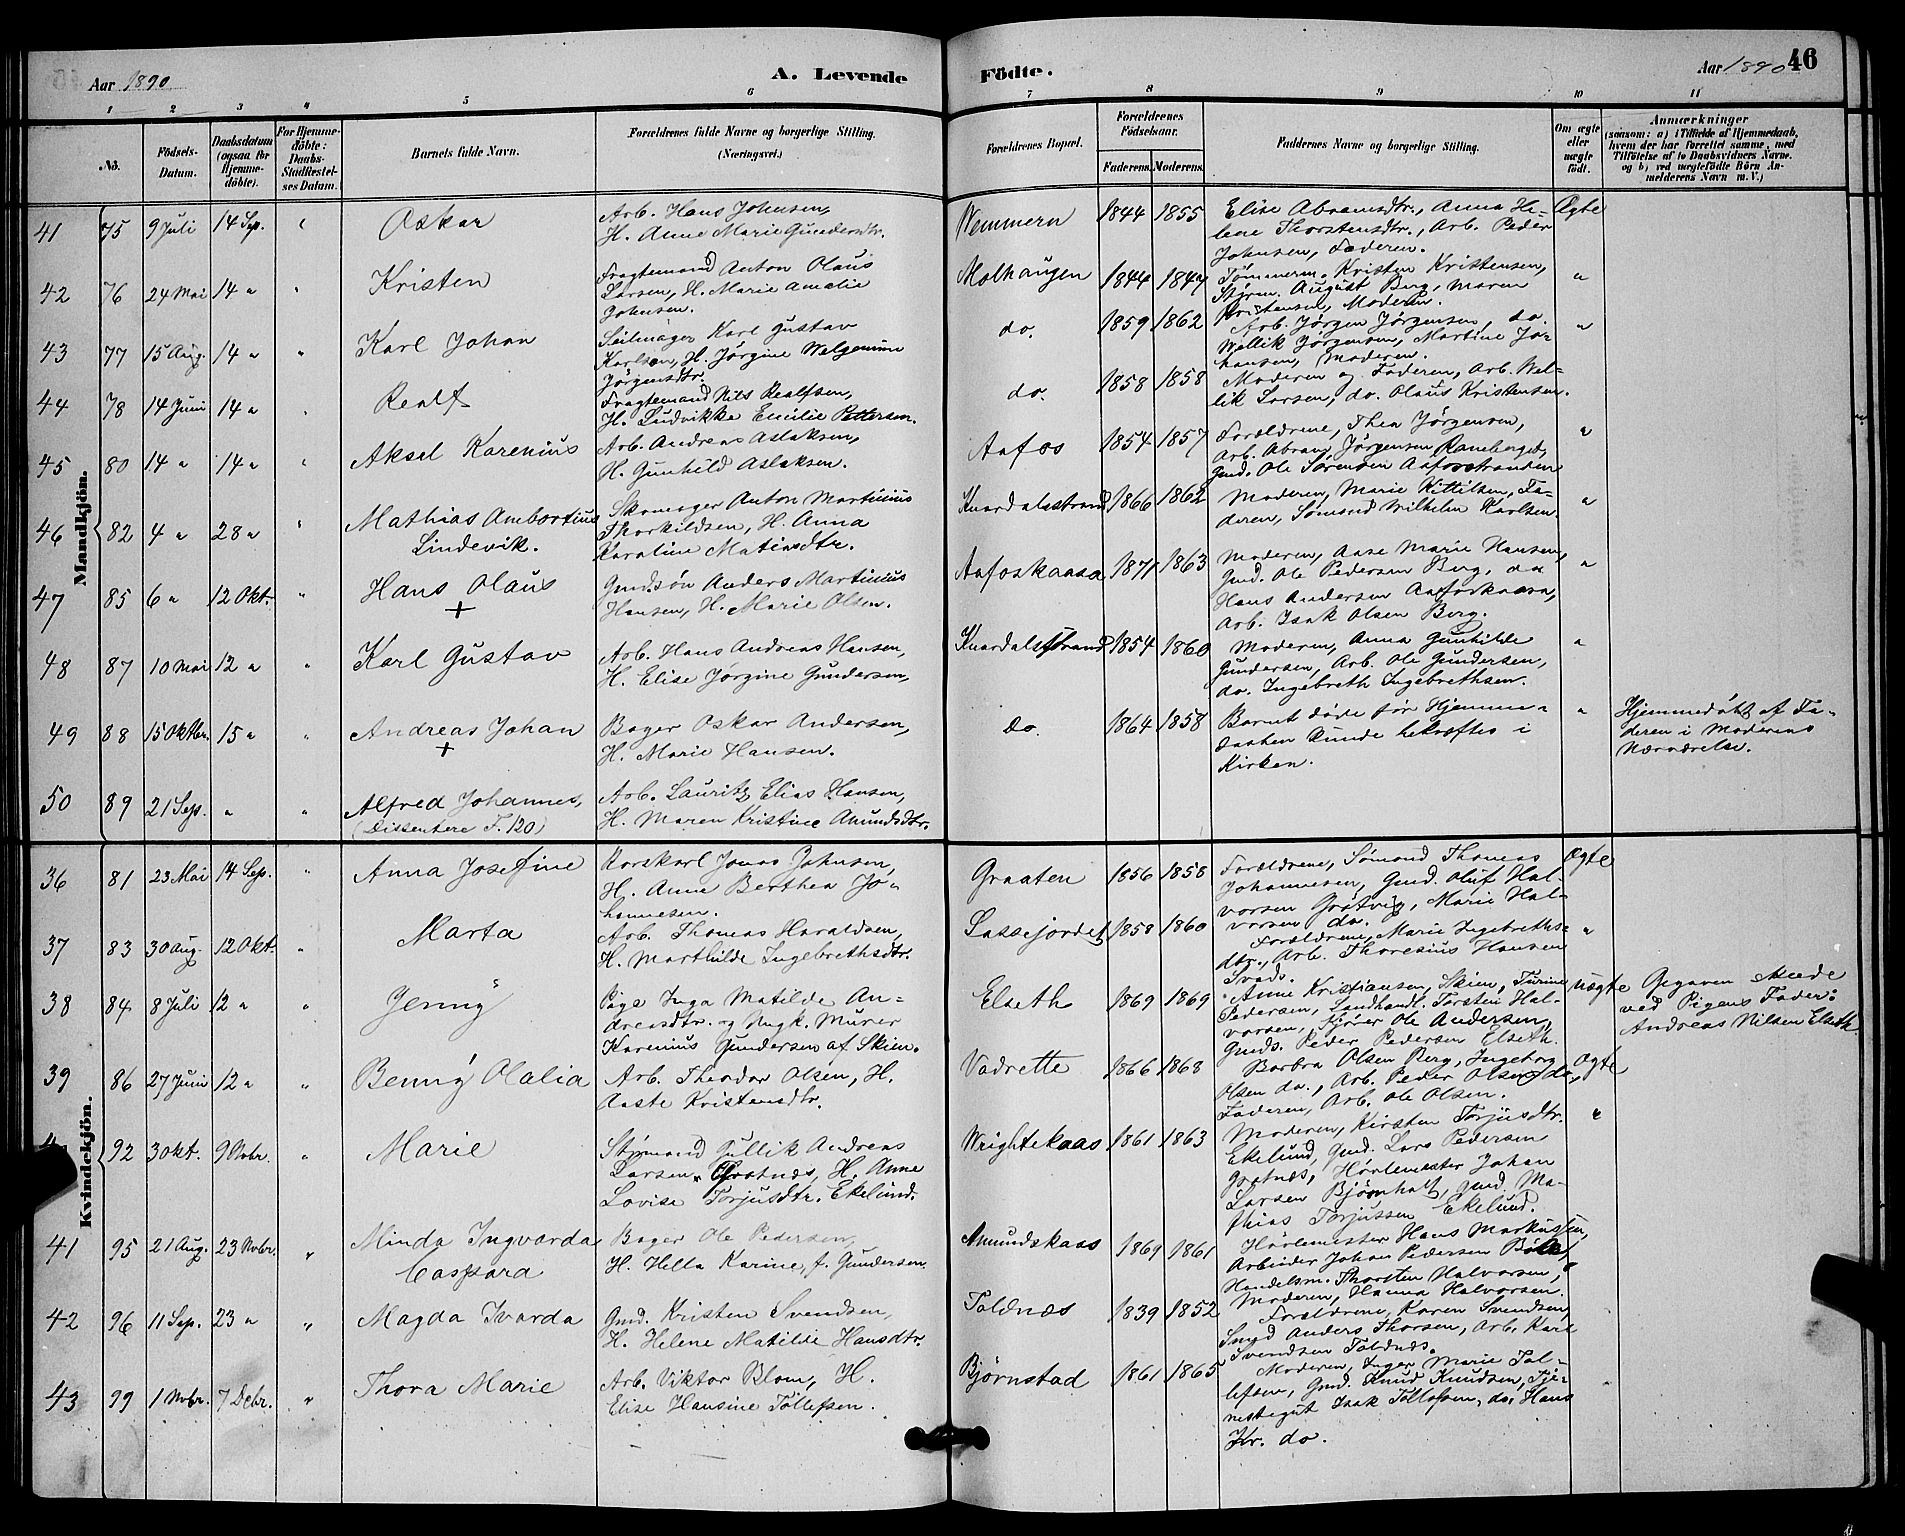 Aar 1890
A. Levende
Födte.
Aar 1890
46
1 2 3 4 5 6 7 8 9 10 11
No.
Födsels-Datum.
Daabsdatum (ogsaa for Hjemmedöbte).
For Hjemmedöbte: Daabs-Stadfæstelses Datum.
Barnets fulde Navn.
Forældrenes fulde Navne og borgerlige Stilling.
(Næringsvei.)
Forældrenes Bopæl.
Forældrenes Födselsaar.
Faderens. Moderens.
Faddernes Navne og borgerlige Stilling.
Om ægte eller uægte födt.
Anmærkninger
(saasom: a) i Tilfælde af Hjemmedaab,
hvem der har forrettet samme, med
Tilföielse af to Daabsvidners Navne.
og b) ved uægtefödte Börn Anmelderens Navn m. V.)
Mandkjön.
41 75 9 Juli 14 Sep. " Oskar
Arb. Hans Johnsen,
H. Anne Marie Gundersdtr.
Wemmern 1844 1855
Elise Abramsdtr., Anna He-
lene Thorstensdtr., Arb. Peder
Johnsen, Faderen.
Ægte
42 76 24 Mai 14 " " Kristen
Fragtemand Anton Olaus
Larsen, H. Marie Amalie
Johnsen.
Molhaugen 1844 1847
Tømmerm. Kristen Kristensen,
Styrm. August Berg, Maren
Kristensen, Moderen.
"
43 77 15 Aug. 14 " " Karl Johan
Seilmager Karl Gustav
Karlsen, H. Jørgine
Jørgensdtr.
do. 1859 1862
Arb. Jørgen Jørgensen, do.
Wellik Jørgensen, Martine Jo-
hansen, Moderen.
"
44 78 14 Juni 14 " " Realf
Fragtemand Nils Realfsen,
H. Ludvikke Emilie Pettersen.
do. 1858 1858
Moderen og Faderen, Arb. Wel-
lik Larsen, do. Olaus Kristensen.
45 80 14 " 14 " " Aksel Karenius
Arb. Andreas Aslaksen,
H. Gunhild Aslaksen.
Aafos 1854 1857
Forældrene, Thea Jørgensen,
Arb. Abram Jørgensen
Gmd. Ole Sørensen Aafosstranden
"
46 82 4 " 28 " " Mathias Ambortius
Lindevik.
Skomager Anton Martinius
Thorkildsen, H. Anna
Karoline Matiasdtr.
Knardalsstrand 1866 1862
Moderen, Marie Kittilsen, Fa-
deren, Sømand Wilhelm Karlsen.
"
47 85 6 " 12 Okt. " Hans Olaus
+
Gmdsøn Anders Martinius
Hansen, H. Marie Olsen.
Aafoskaasa 1871 1863
Moderen, Aase Marie Hansen,
Gmd. Ole Pedersen Berg, do
Hans Andersen Aafoskaasa,
Arb. Isak Olsen Berg.
"
48 87 10 Mai 12 " " Karl Gustav
Arb. Hans Andreas Hansen,
H. Elise Jørgine Gundersen,
Knardalsstrand 1854 1860
Moderen, Anna Gunhilde
Gundersen, Arb. Ole Gundersen,
do. Ingebreth Ingebrethsen.
"
49 88 15 Oktbr. 15 " " Andreas Johan
+
Bager Oskar Andersen,
H. Marie Hansen.
do. 1864 1858
Barnet døde før Hjemme-
daaben kunde bekræftes i
Kirken.
"
Hjemmedøbt af Fa-
deren i Moderens
Nærværelse.
50 89 21 Sep. " " Alfred Johannes,
(Dissentere F. 120)
Arb. Lauritz Elias Hansen,
H. Maren Kristine Amundsdtr.
Kvindekjön.
36 81 23 Mai 14 Sep. " Anna Josefine
Karskarl Jonas Johnsen,
H. Anne Berthea Jo-
hannesen.
Graaten 1856 1858
Forældrene, Sømand Thomas
Johannesen, Gmd. Oluf Hal-
vorsen Grotvig, Marie Hal-
vorsen do.
Ægte
37 83 30 Aug. 12 Okt. " Marta
Arb. Thomas Haraldsen,
H. Marthilde Ingebrethsdtr.
Lassejordet 1858 1860
Forældrene, Marie Ingebreths-
dtr., Arb. Thoresius Hansen
"
38 84 8 Juli 12 " " Jenny
Pige Inga Matilde An-
dreasdtr. og Ungk. Murer
Karenius Gundersen af Skien.
Elseth 1869 1869
Anne Kristiansen, Skien, Turine
Pedersen, Landhandl. Torsten Hal-
vorsen, Ole Andersen,
Gmds. Peder Pedersen Elseth.
uægte
Opgaven skede
ved Pigens Fader:
Andreas Nilsen Elseth
39 86 27 Juni 12 " " Benny Olalia
Arb. Theodor Olsen, H.
Aaste Kristensdtr.
Vadrette 1866 1868
Barbra Olsen Berg, Ingeborg
Olsen do., Arb. Peder Olsen do.,
Faderen, Arb. Ole Olsen.
Ægte
92 3 Okt. 9 Novbr. " Marie
Styrmand Gullik Andreas
Larsen Grotnæs, H. Anne
Lovise Torjusdtr. Ekelund.
Wrightskaas 1861 1863
Moderen, Kirsten Torjusdtr.
Ekelund, Gmd. Lars Pedersen
Grotnæs, Hørlemester Johan
Larsen Bjørnholt, Gmd Ma-
thias Torjussen Ekelund.
"
41 95 21 Aug. 23 Novbr. " Minda Ingvarda
Caspara
Bager Ole Pedersen,
H. Hella Karine, f. Gundersen
Amundskaas 1869 1861
Hørlemester Hans Markussen,
Arbeider Johan Pedersen
Handelsm. Thorsten Halvorsen,
Moderen, Hanna Halvorsen.
"
42 96 11 Sep. 23 " " Magda Ivarda
Gmd. Kristen Svendsen,
H. Helene Matilde Hansdtr.
Toldnæs 1839 1852
Forældrene, Karen Svendsen,
Smed Anders Thorsen, Arb. Karl
Svendsen Toldnæs.
43 99 1 Novbr. 7 Debr. " Thora Marie
Arb. Viktor Blom, H.
Elise Hansine Tollefsen.
Bjørnstad 1861 1865
Moderen, Inger Marie Tol-
lefsen, Gmd. Knud Knudsen, Tje-
nestegut Isak Tollefsen, do. Hans
Kr. do.